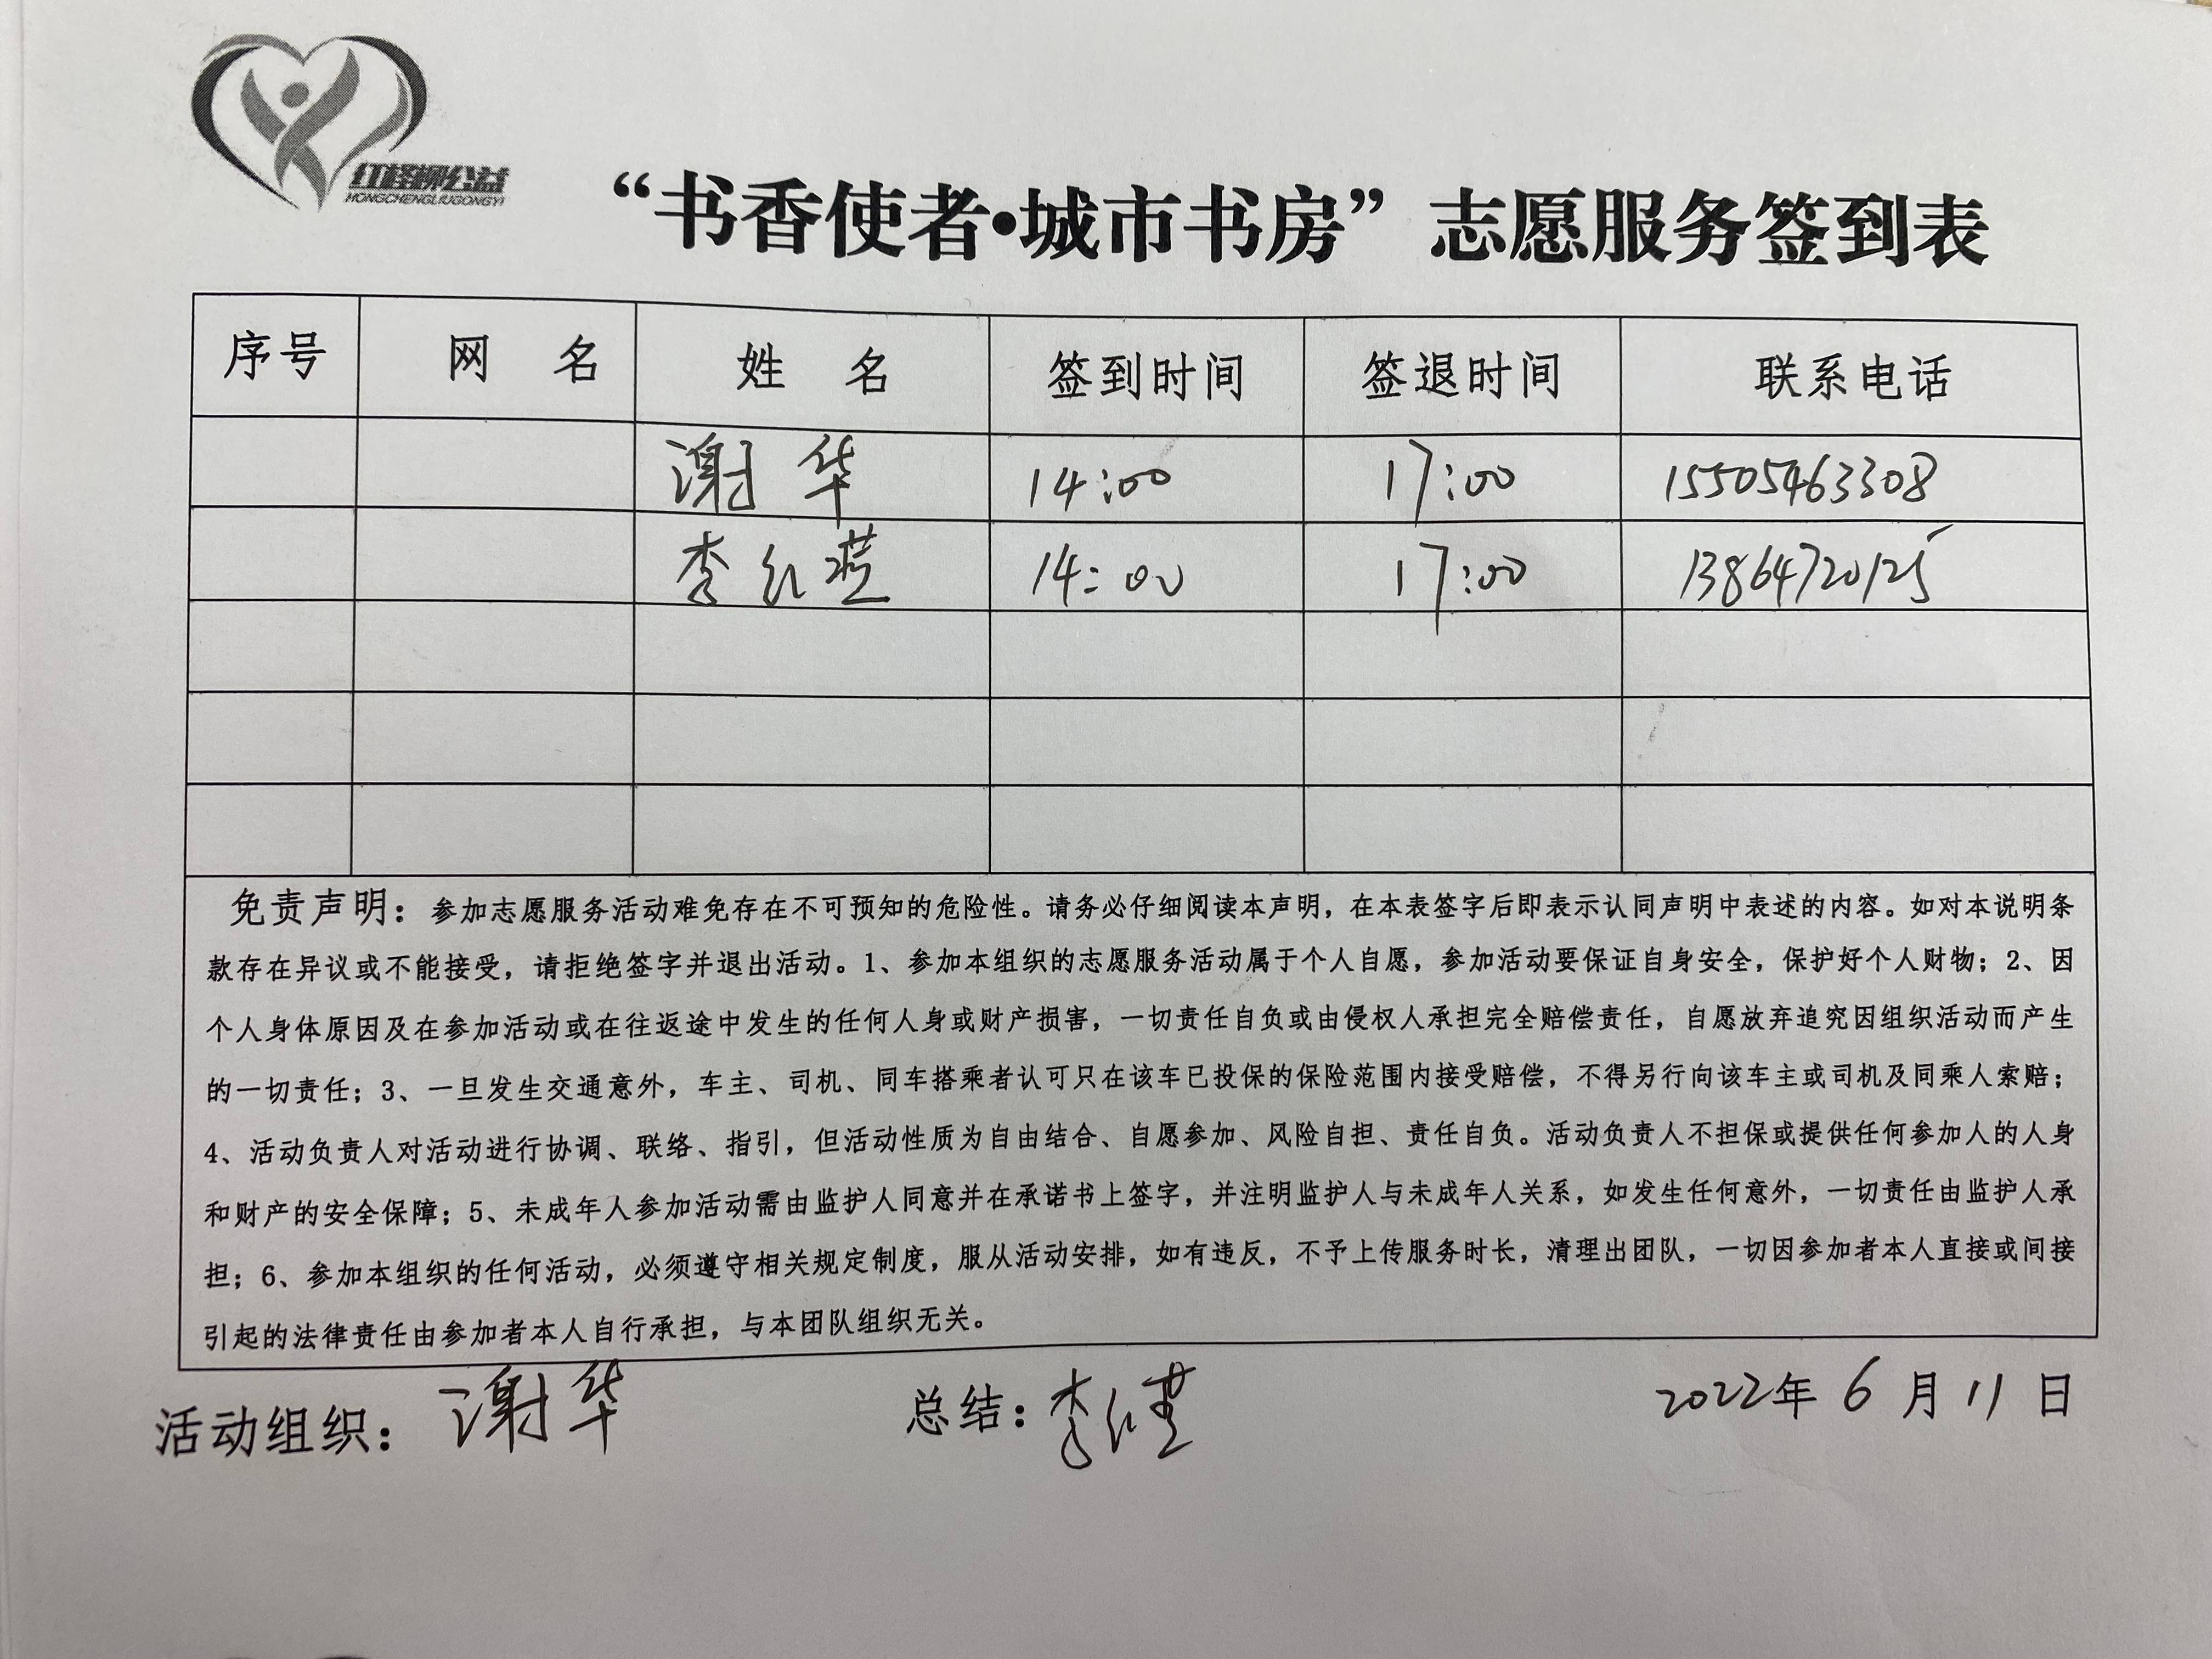 红柽柳公益
HONGCHENGLIUGONGYI
“书香使者•城市书房”志愿服务签到表
序号 网 名 姓 名 签到时间 签退时间 联系电话
谢华 14:00 17:00 15505463308
李红 14:00 17:00 13864720125
免责声明：参加志愿服务活动难免存在不可预知的危险性。请务必仔细阅读本声明，在本表签字后即表示认同声明中表述的内容。如对本说明条
款存在异议或不能接受，请拒绝签字并退出活动。1、参加本组织的志愿服务活动属于个人自愿，参加活动要保证自身安全，保护好个人财物；2、因
个人身体原因及在参加活动或在往返途中发生的任何人身或财产损害，一切责任自负或由侵权人承担完全赔偿责任，自愿放弃追究因组织活动而产生
的一切责任；3、一旦发生交通意外，车主、司机、同车搭乘者认可只在该车已投保的保险范围内接受赔偿，不得另行向该车主或司机及同乘人索赔；
4、活动负责人对活动进行协调、联络、指引，但活动性质为自由结合、自愿参加、风险自担、责任自负。活动负责人不担保或提供任何参加人的人身
和财产的安全保障；5、未成年人参加活动需由监护人同意并在承诺书上签字，并注明监护人与未成年人关系，如发生任何意外，一切责任由监护人承
担；6、参加本组织的任何活动，必须遵守相关规定制度，服从活动安排，如有违反，不予上传服务时长，清理出团队，一切因参加者本人直接或间接
引起的法律责任由参加者本人自行承担，与本团队组织无关。
活动组织：谢华 总结：李红 2022年6月11日